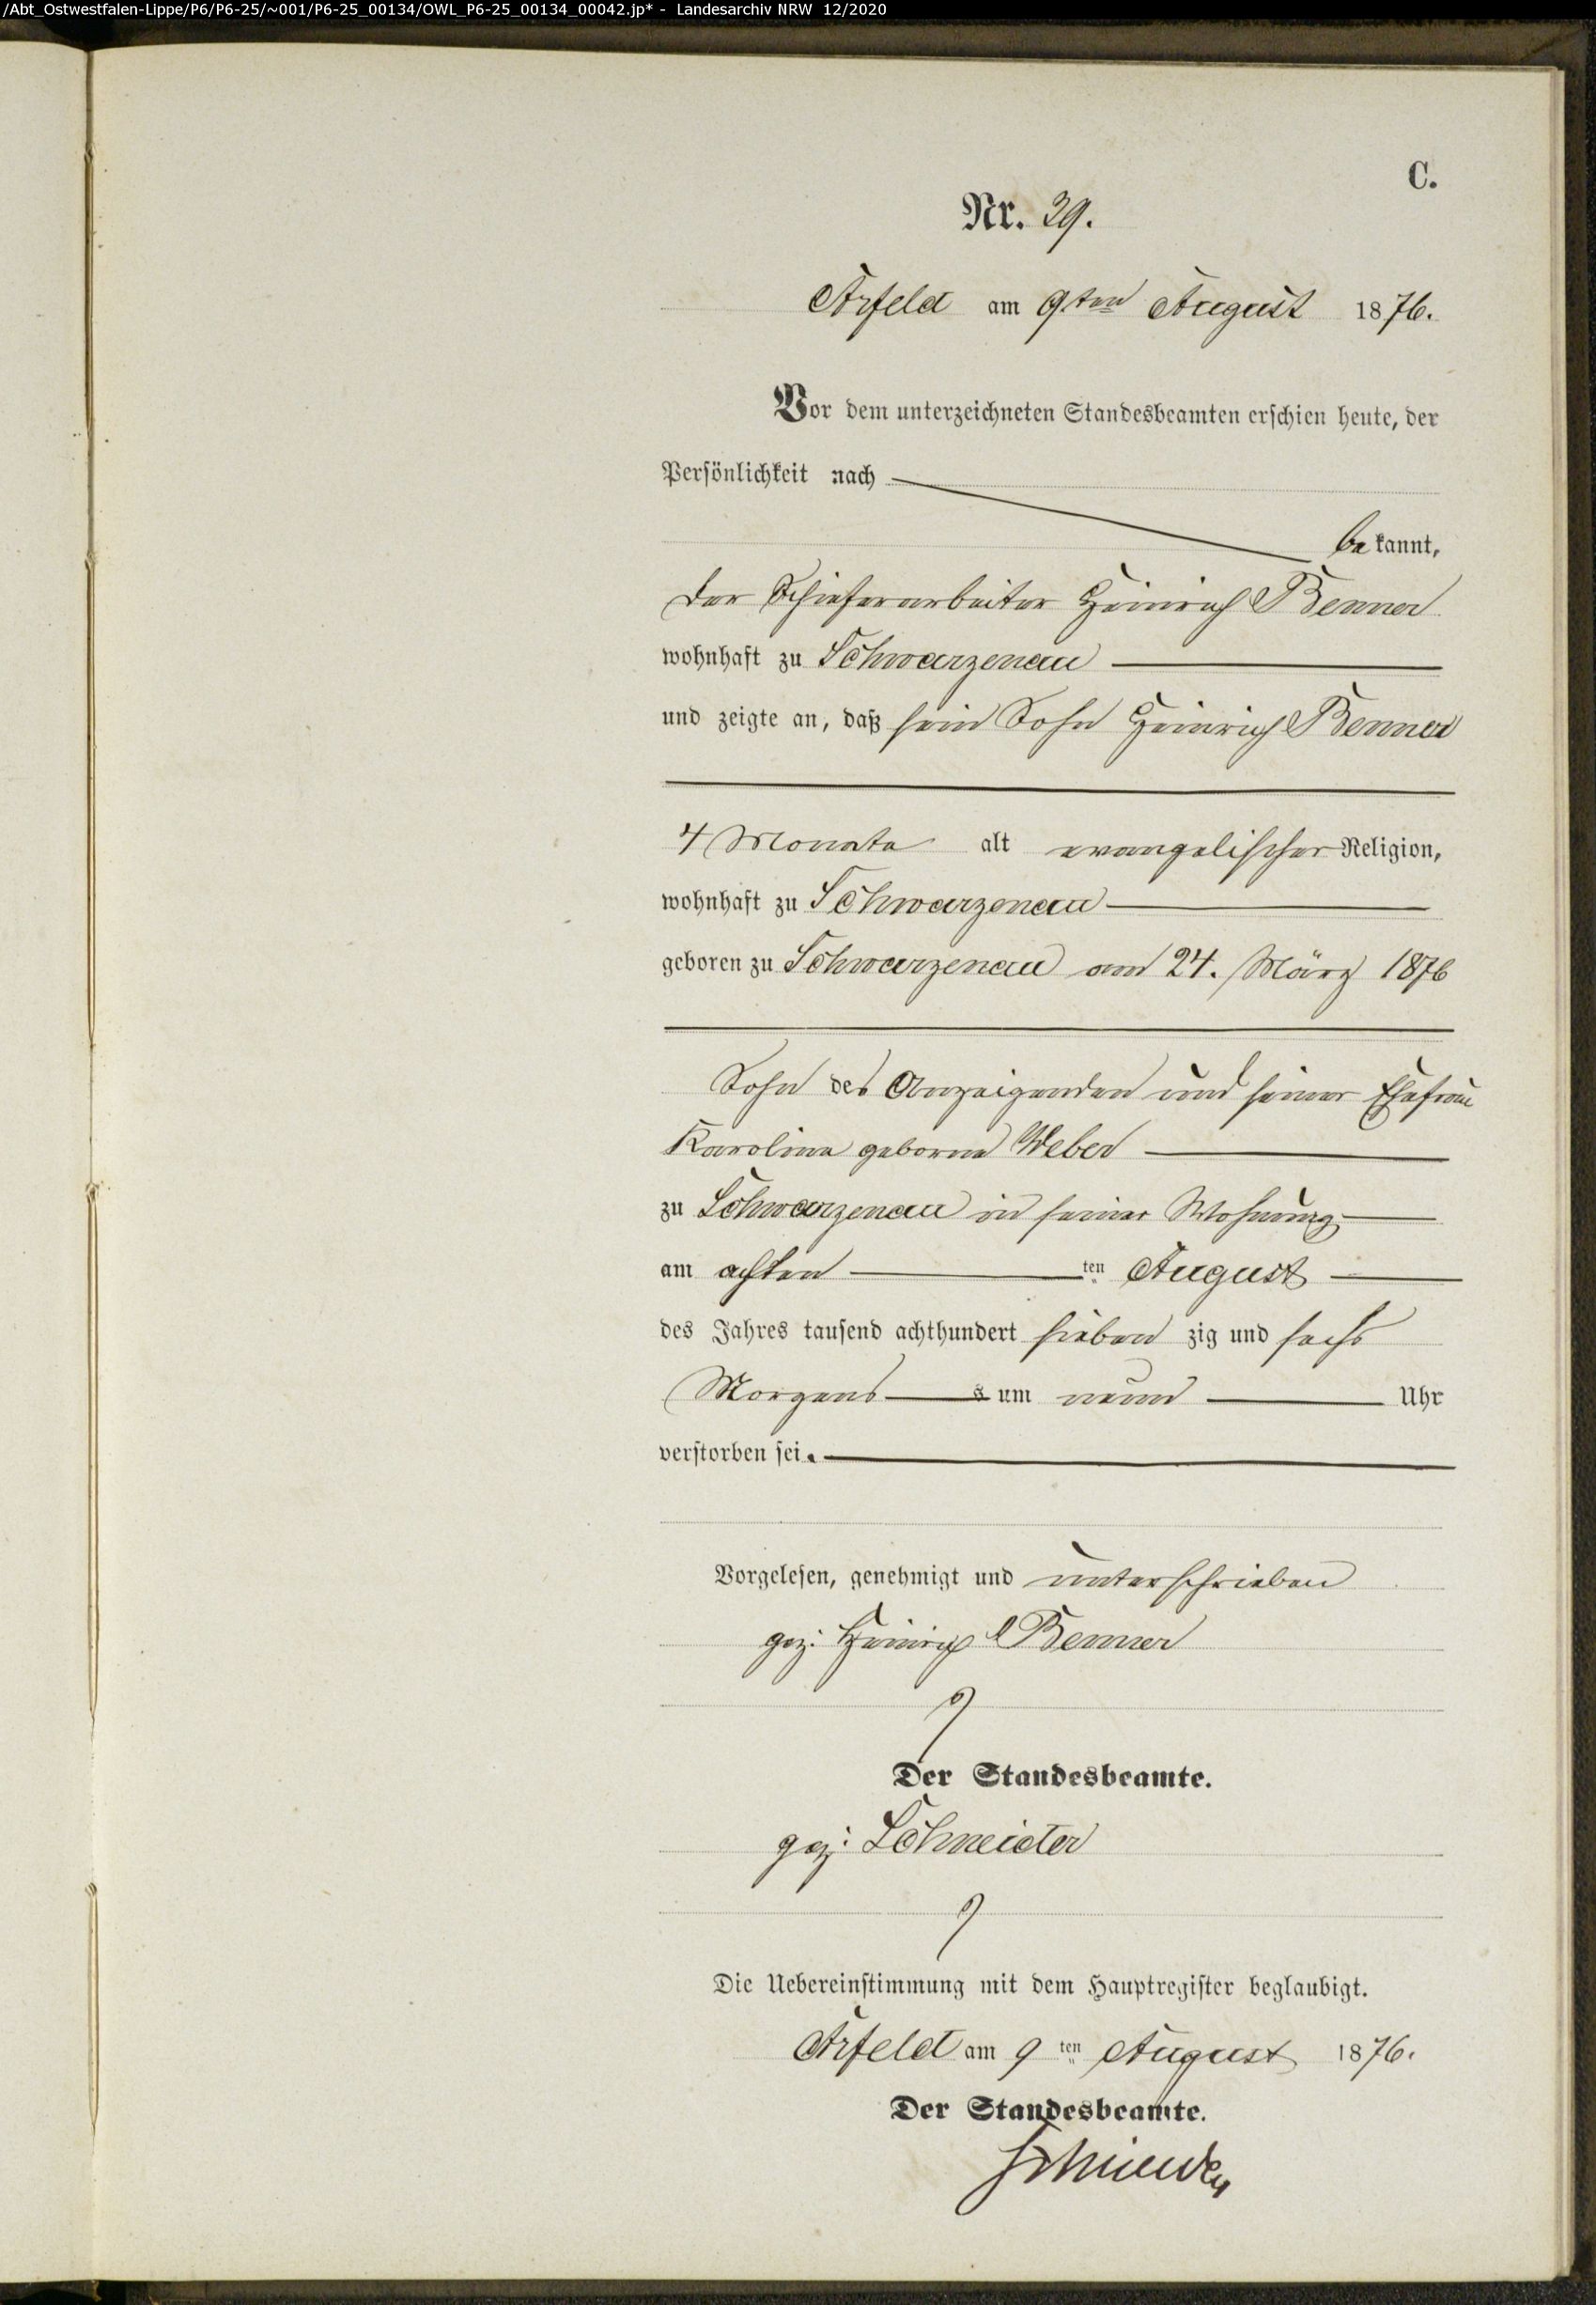 /Abt_Ostwestfalen-Lippe/P6/P6-25/~001/P6-25_00134/OWL_P6-25_00134_00042.jp* - Landesarchiv NRW 12/2020
C.
Nr. 39.
Arfeld am 9ten August 1876.
Vor dem unterzeichneten Standesbeamten erschien heute, der
Persönlichkeit nach
bekannt,
der Schieferarbeiter Heinrich Benner
wohnhaft zu Schwarzenau
und zeigte an, daß sein Sohn Heinrich Benner
4 Monate alt evangelischer Religion,
wohnhaft zu Schwarzenau
geboren zu Schwarzenau am 24. März 1876
Sohn des Anzeigenden und seiner Ehefrau
Karoline geborne Weber
zu Schwarzenau in seiner Wohnung
am achten ten August
des Jahres tausend achthundert sieben zig und sechs
Morgens s um neun Uhr
verstorben sei.
Vorgelesen, genehmigt und unterschrieben
gez: Heinrich Benner
Der Standesbeamte.
gez: Schneider
Die Uebereinstimmung mit dem Hauptregister beglaubigt.
Arfeld am 9 ten August 1876.
Der Standesbeamte.
Schneider